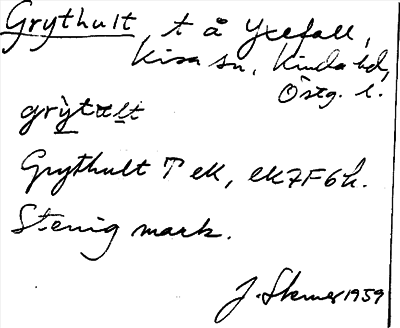 Grythult, t å Yxefall,
Kisa sn, Kinda hd,
Östg. l.
grỳtult
Grythult T ek, ek 7F6h.
Stenig mark.
J. 1959